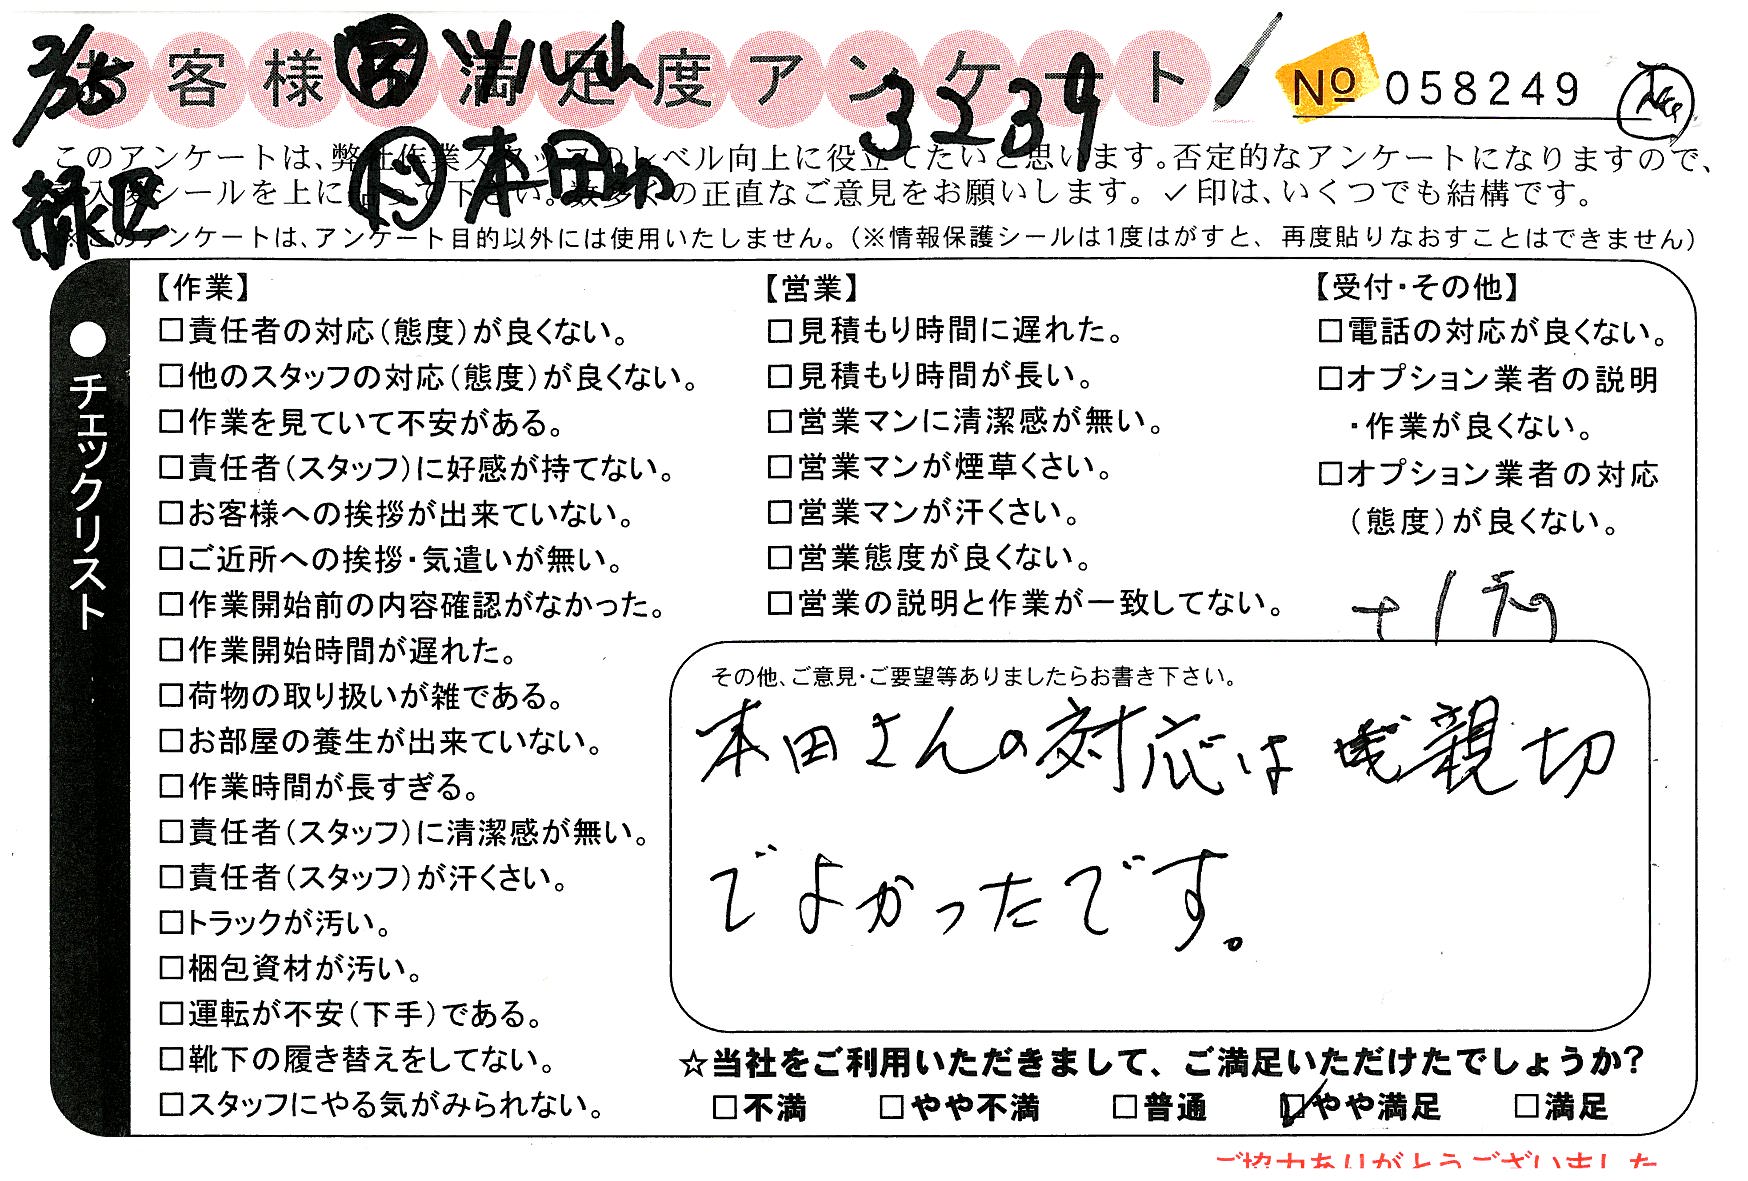 お客様満足度アンケート
2/25
3239
№ 058249
本田
緑区
このアンケートは、弊社作業スタッフのレベル向上に役立てたいと思います。否定的なアンケートになりますので、
記入後シールを上に貼って下さい。数多くの正直なご意見をお願いします。✓印は、いくつでも結構です。
※このアンケートは、アンケート目的以外には使用いたしません。（※情報保護シールは1度はがすと、再度貼りなおすことはできません）
●チェックリスト
【作業】
□責任者の対応（態度）が良くない。
□他のスタッフの対応（態度）が良くない。
□作業を見ていて不安がある。
□責任者（スタッフ）に好感が持てない。
□お客様への挨拶が出来ていない。
□ご近所への挨拶・気遣いが無い。
□作業開始前の内容確認がなかった。
□作業開始時間が遅れた。
□荷物の取り扱いが雑である。
□お部屋の養生が出来ていない。
□作業時間が長すぎる。
□責任者（スタッフ）に清潔感が無い。
□責任者（スタッフ）が汗くさい。
□トラックが汚い。
□梱包資材が汚い。
□運転が不安（下手）である。
□靴下の履き替えをしてない。
□スタッフにやる気がみられない。
【営業】
□見積もり時間に遅れた。
□見積もり時間が長い。
□営業マンに清潔感が無い。
□営業マンが煙草くさい。
□営業マンが汗くさい。
□営業態度が良くない。
□営業の説明と作業が一致してない。
【受付・その他】
□電話の対応が良くない。
□オプション業者の説明
・作業が良くない。
□オプション業者の対応
（態度）が良くない。
その他、ご意見・ご要望等ありましたらお書き下さい。
本田さんの対応は親切
でよかったです。
☆当社をご利用いただきまして、ご満足いただけたでしょうか?
□不満 □やや不満 □普通 ☑やや満足 □満足
ご協力ありがとうございました